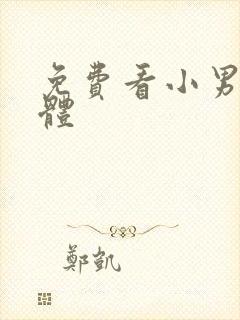 免費看小男
體
鄭凱